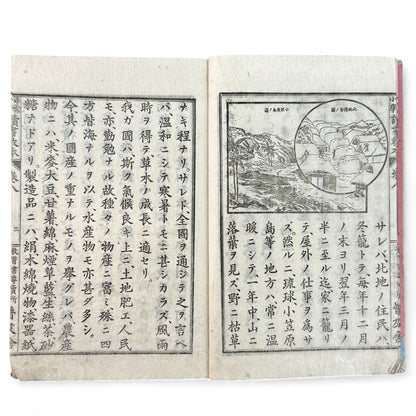 北地積雪ノ圖
小笠原島ノ圖
サレバ北地ノ住民ハ
冬籠トテ毎年十二月
ノ末ヨリ翌年三月ノ
半ニ至ル迄家ニ籠リ
テ屋外ノ仕事ヲ爲サ
ズ然ルニ琉球小笠原
島等ノ地方ハ常ニ温
暖ニシテ一年中山ニ
落葉ヲ見ズ野ニ枯草
ナキ程ナリサレド全國ヲ通シテ之ヲ言ヘ
バ温和ニシテ寒暑トモニ甚シカラズ風雨
時ヲ得テ草木ノ成長ニ適セリ。
我ガ國ハ斯ク氣候良キ上ニ土地肥エ人民
モ亦勤勉ナル故種々ノ物産ニ富ミ殊ニ四
方皆海ナルヲ以テ水産物モ亦甚ダ多シ。
今其ノ國産ノ重ナルモノヲ擧グレバ農産
物ニハ米麥大豆甘藷綿麻煙草生絲茶砂
糖ナドアリ製造品ニハ絹木綿燒物漆器紙
卷八
二